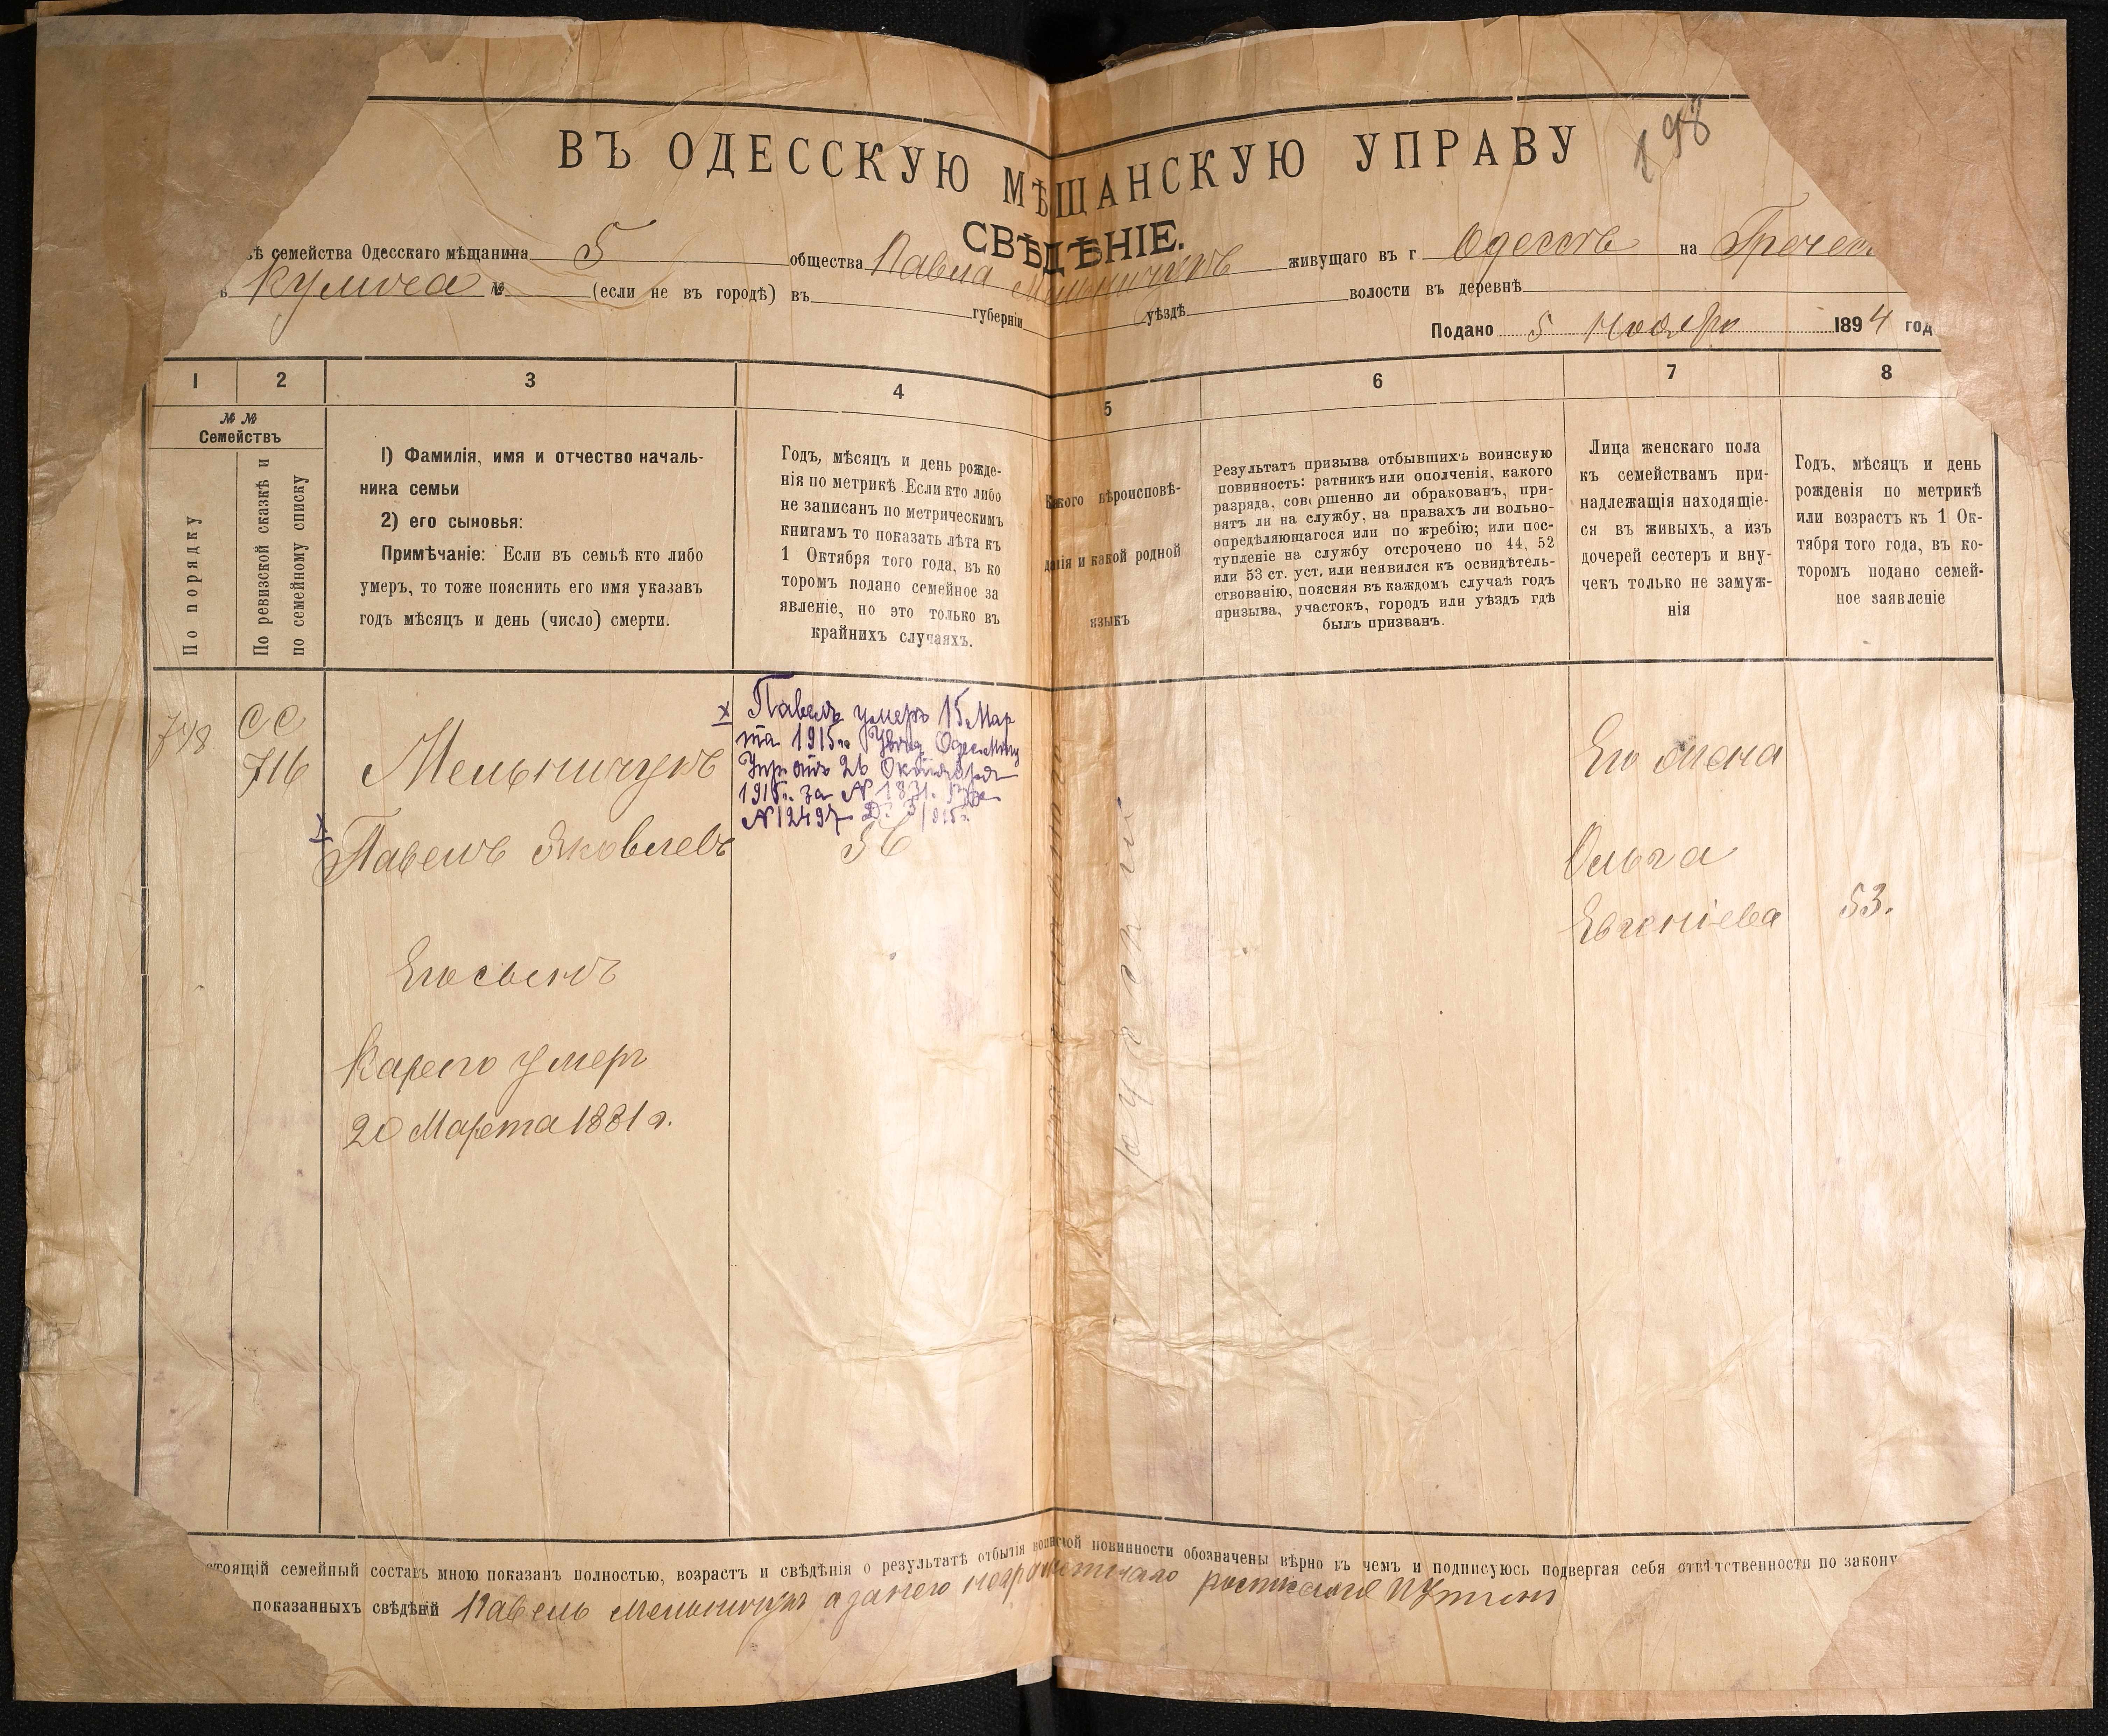 198
ВЪ ОДЕССКУЮ МѢЩАНСКУЮ УПРАВУ
СВѢДѢНІЕ.
ѣ семейства Одесскаго мѣщанина 5 общества Павла Мельничукъ живущаго въ г Одессѣ на Гречес
№ (если не въ городѣ) въ губерніи уѣздѣ волости въ деревнѣ
Подано 5 Ноября 1894 год
1 2 3 4 5 6 7 8
№ №
Семействъ
По порядку
По ревизской сказкѣ и
по семейному списку
1) Фамилія, имя и отчество началь-
ника семьи
2) его сыновья:
Примѣчаніе: Если въ семьѣ кто либо
умеръ, то тоже пояснить его имя указавъ
годъ мѣсяцъ и день (число) смерти.
Годъ, мѣсяцъ и день рожде-
нія по метрикѣ. Если кто либо
не записанъ по метрическимъ
книгамъ то показать лѣта къ
1 Октября того года, въ ко
торомъ подано семейное за
явленіе, но это только въ
крайнихъ случаяхъ.
Какого вѣроисповѣ-
данія и какой родной
языкъ
Результатъ призыва отбывшихъ воинскую
повинность: ратникъ или ополченія, какого
разряда, совершенно ли обракованъ, при-
нятъ ли на службу, на правахъ ли вольно-
опредѣляющагося или по жребію; или пос-
тупленіе на службу отсрочено по 44, 52
или 53 ст. уст. или неявился къ освидѣтель-
ствованію, поясняя въ каждомъ случаѣ годъ
призыва, участокъ, городъ или уѣздъ гдѣ
былъ призванъ.
Лица женскаго пола
къ семействамъ при-
надлежащія находящіе-
ся въ живыхъ, а изъ
дочерей сестеръ и вну-
чекъ только не замуж-
нія
Годъ, мѣсяцъ и день
рожденія по метрикѣ
или возрастъ къ 1 Ок-
тября того года, въ ко-
торомъ подано семей-
ное заявленіе
748
СС
716
Мельничукъ
х Павелъ Яковлевъ
Его сынъ
Карпо умеръ
20 Марта 1881 г.
х Павелъ умеръ 15 Мар
та 1915г. Увѣд. Одес. Мѣщ
Упр. отъ 26 Октября
1915г. за № 1871. Вх.
№ 12497 Д. 3/915г.
56
русскій
Его жена
Ольга
Евгеніева
53.
стоящій семейный составъ мною показанъ полностью, возрастъ и свѣдѣнія о результатѣ отбытія воинской повинности обозначены вѣрно въ чемъ и подписуюсь подвергая себя отвѣтственности по закону
показанныхъ свѣдѣній Павелъ Мельничукъ а за него неграмотнаго росписался